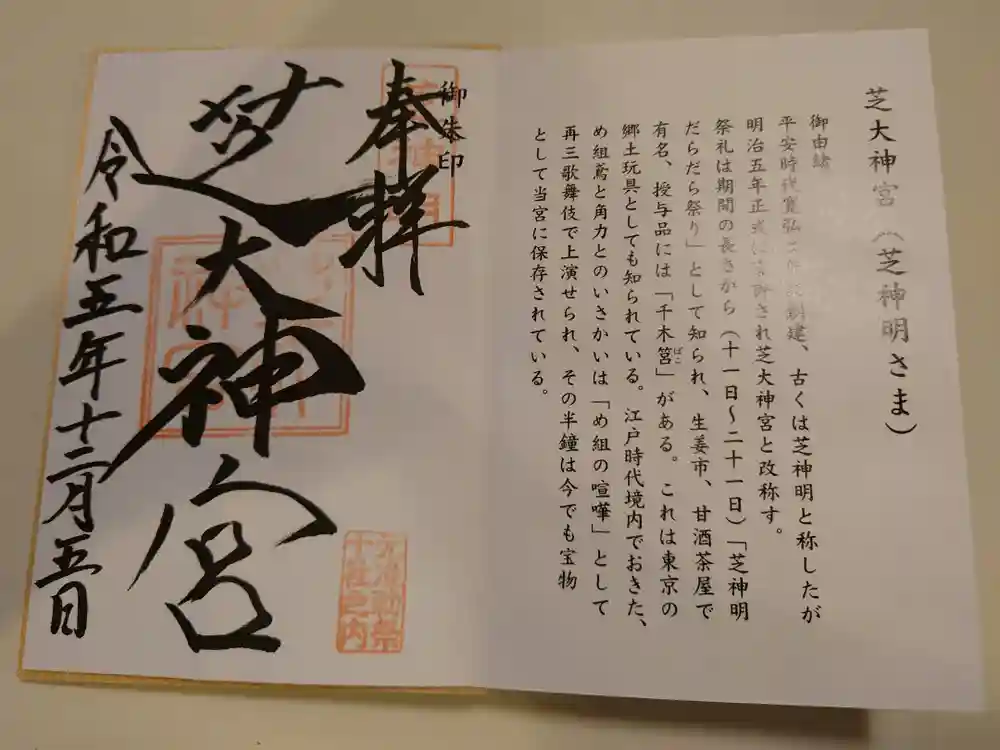 芝大神宮（芝神明さま）
御由緒
平安時代寛弘二年創建、古くは芝神明と称したが
明治五年正式に許され芝大神宮と改称す。
祭礼は期間の長さから（十一日～二十一日）「芝神明
だらだら祭り」として知られ、生姜市、甘酒茶屋で
有名、授与品には「千木筥」がある。これは東京の
ばこ
郷土玩具としても知られている。江戸時代境内でおきた、
め組鳶と角力とのいさかいは「め組の喧嘩」として
再三歌舞伎で上演せられ、その半鐘は今でも宝物
として当宮に保存されている。
御朱印
奉拝
芝大神宮
令和五年十二月五日
元准勅祭
十社之内